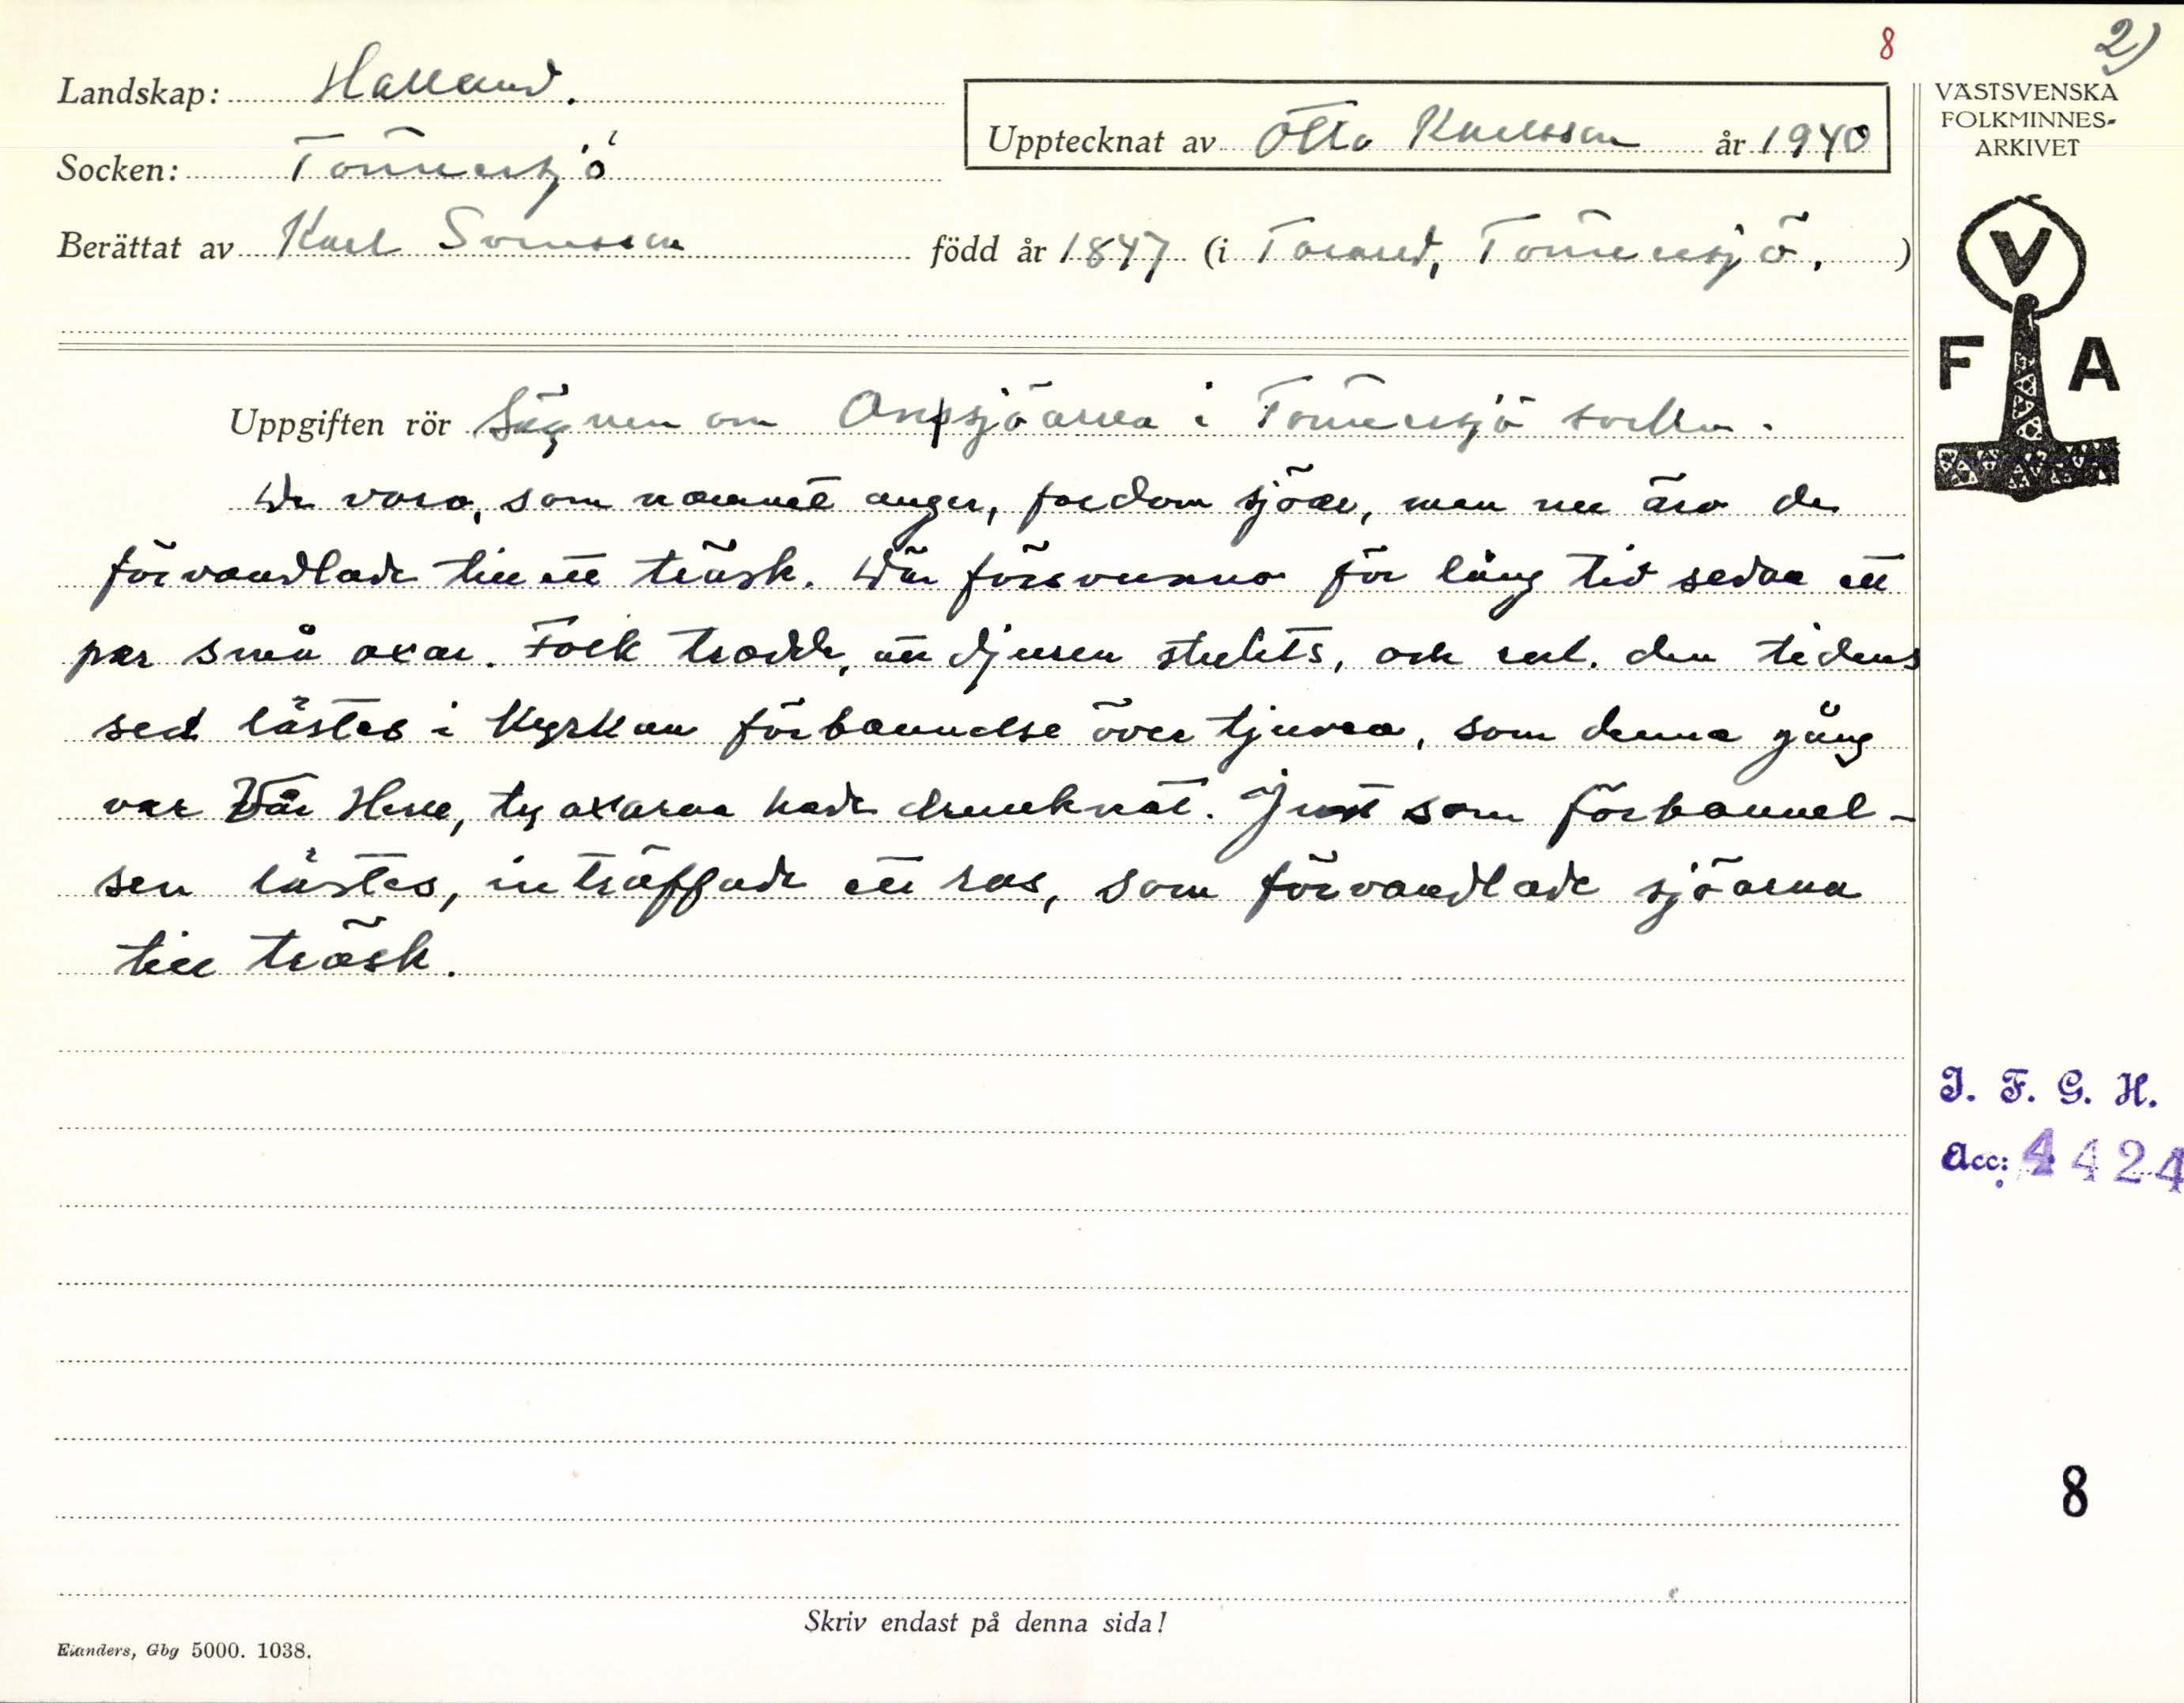 8
2)
Landskap: Halland.
Socken: Tönnersjö
Upptecknat av Otto Karlsson år 1940
VÄSTSVENSKA
FOLKMINNES-
ARKIVET
Berättat av Karl Svensson född år 1847 (i Torared, Tönnersjö. )
V
F A
Uppgiften rör Sägnen om sjöarna i Tönnersjö socken.
De voro, som namnet anger, fordom sjöar, men nu äro de
förvandlade till ett träsk. Där försvunno för lång tid sedan ett
par små oxar. Folk trodde, att djuren stulits, och enl. den tidens
sed lästes i kyrkan förbannelse över tjuven, som denna gång
var Vår Herre, ty oxarna hade drunknat. Just som förbannel-
sen lästes, inträffade ett ras, som förvandlade sjöarna
till träsk.
I. F. G. H.
Acc: 4424
8
Skriv endast på denna sida!
Elanders, Gbg 5000. 1038.